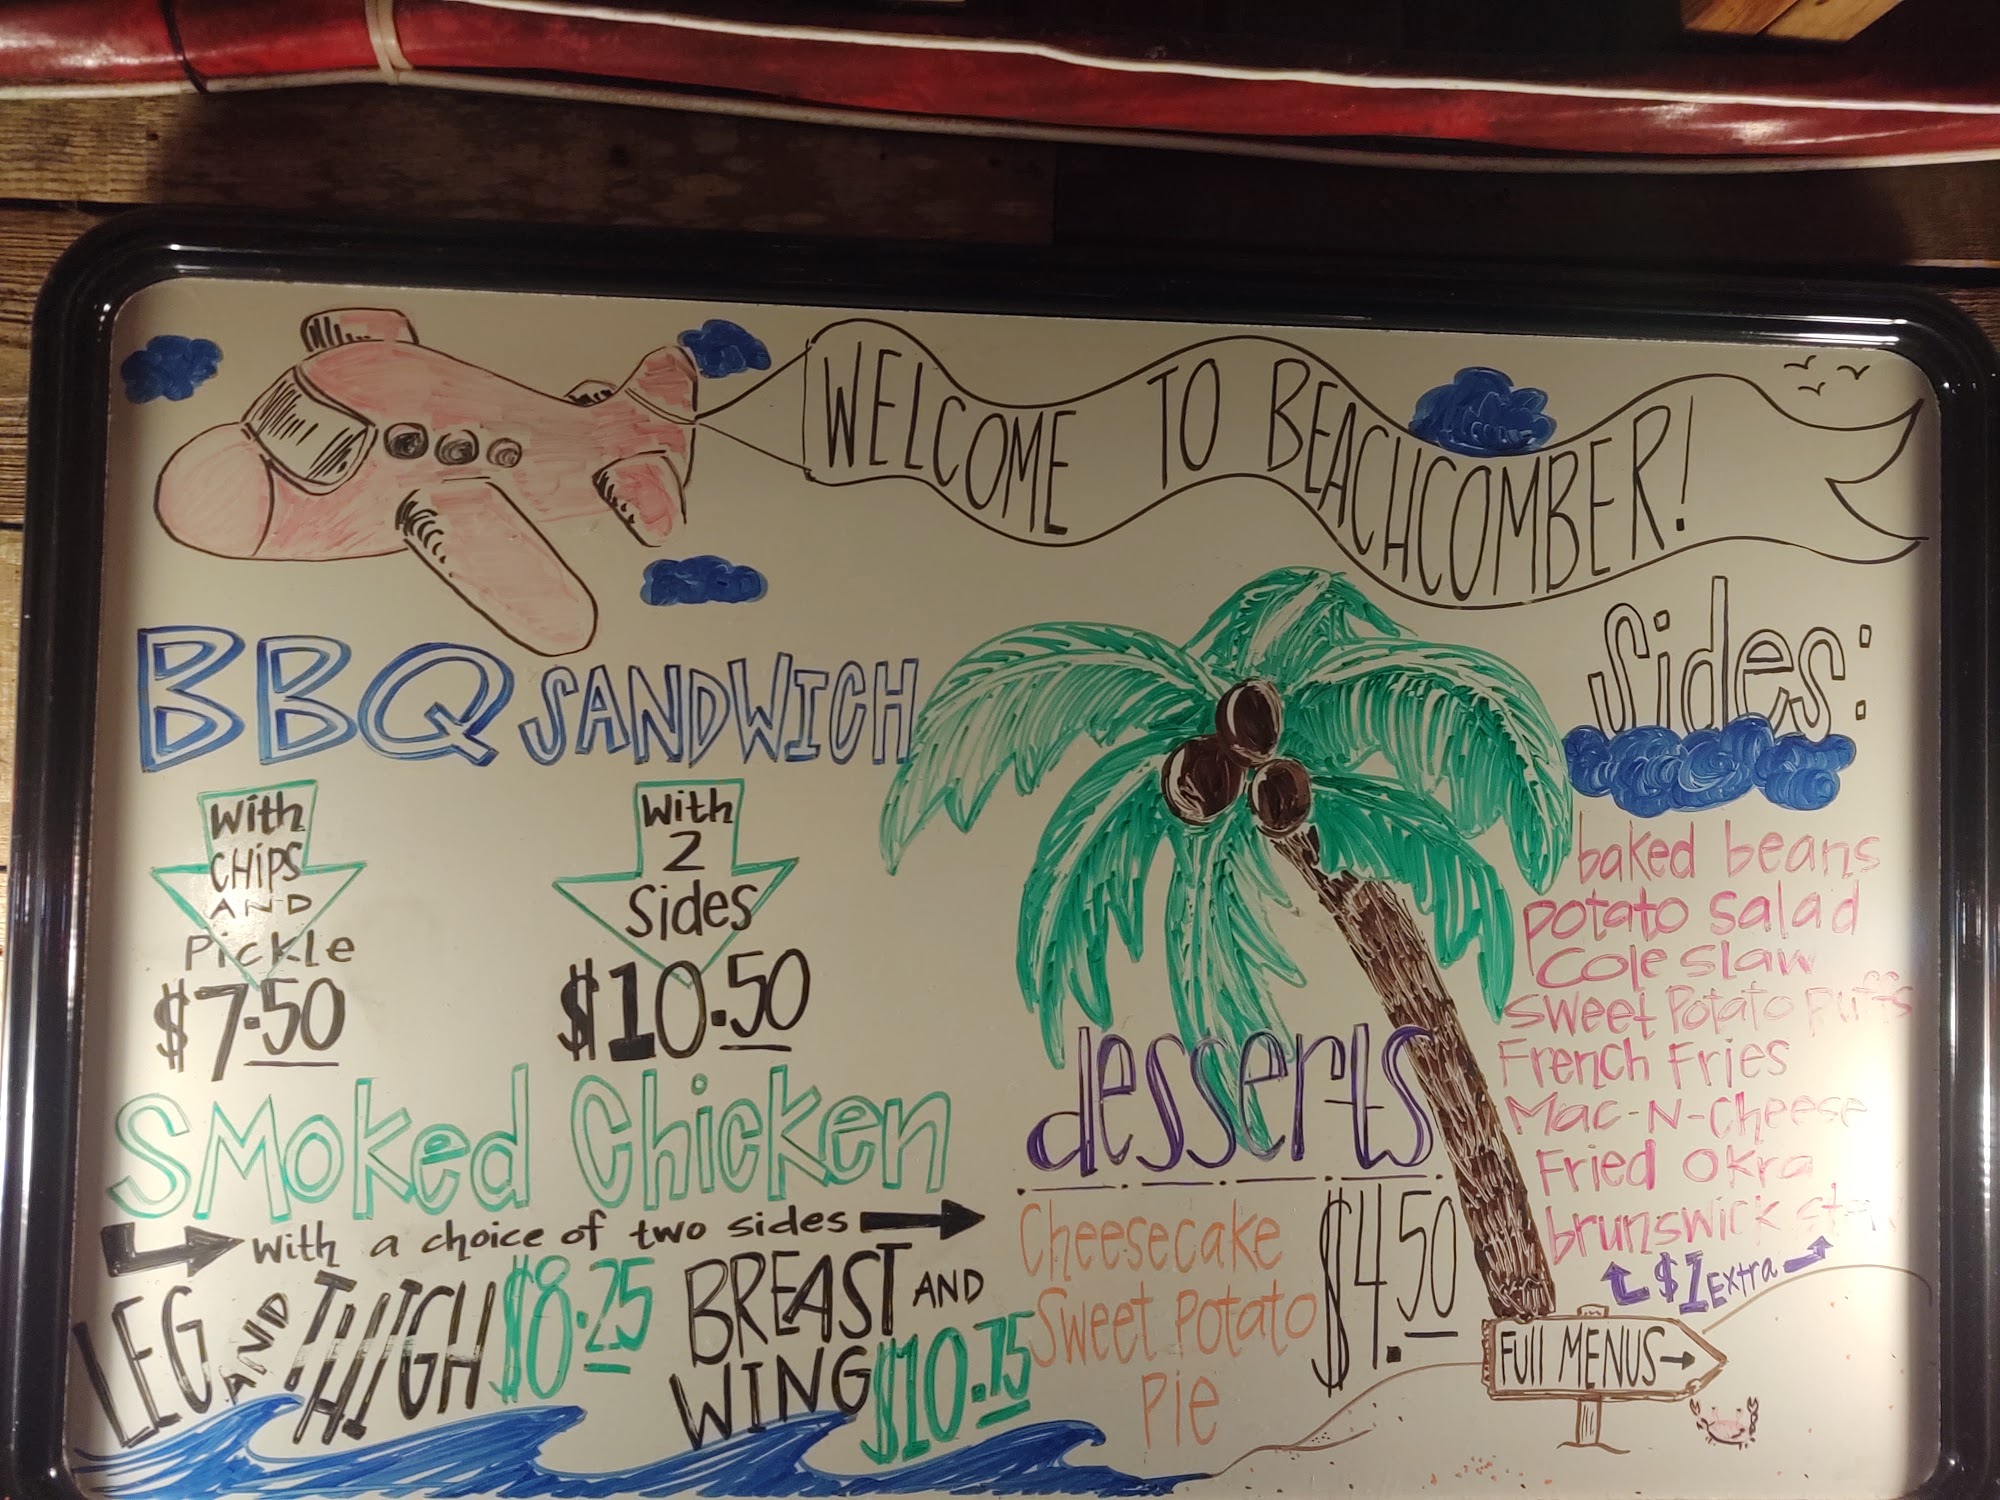 WELCOME TO BEACHCOMBER!
BBQ SANDWICH
With
CHIPS
AND
Pickle
$7.50
With
2
Sides
$10.50
SMOKed Chicken
With a choice of two sides
LEG AND THIGH $8.25
BREAST AND
WING $10.75
desserts
Cheesecake
Sweet Potato
Pie
$4.50
Sides:
baked beans
potato salad
Cole slaw
Sweet Potato puffs
French Fries
Mac-N-Cheese
Fried Okra
brunswick
$1 Extra
FUll MENUS